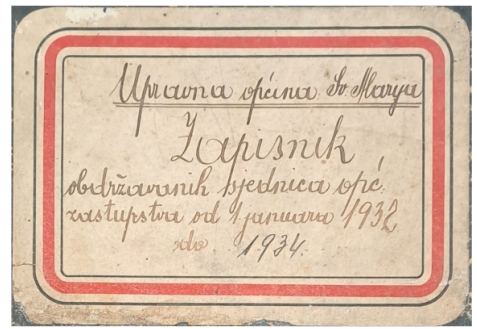 Upravna općina Sv. Marya
Zapisnik
obdržavanih sjednica opć.
zastupstva od 1 januara 1932
do 1934.